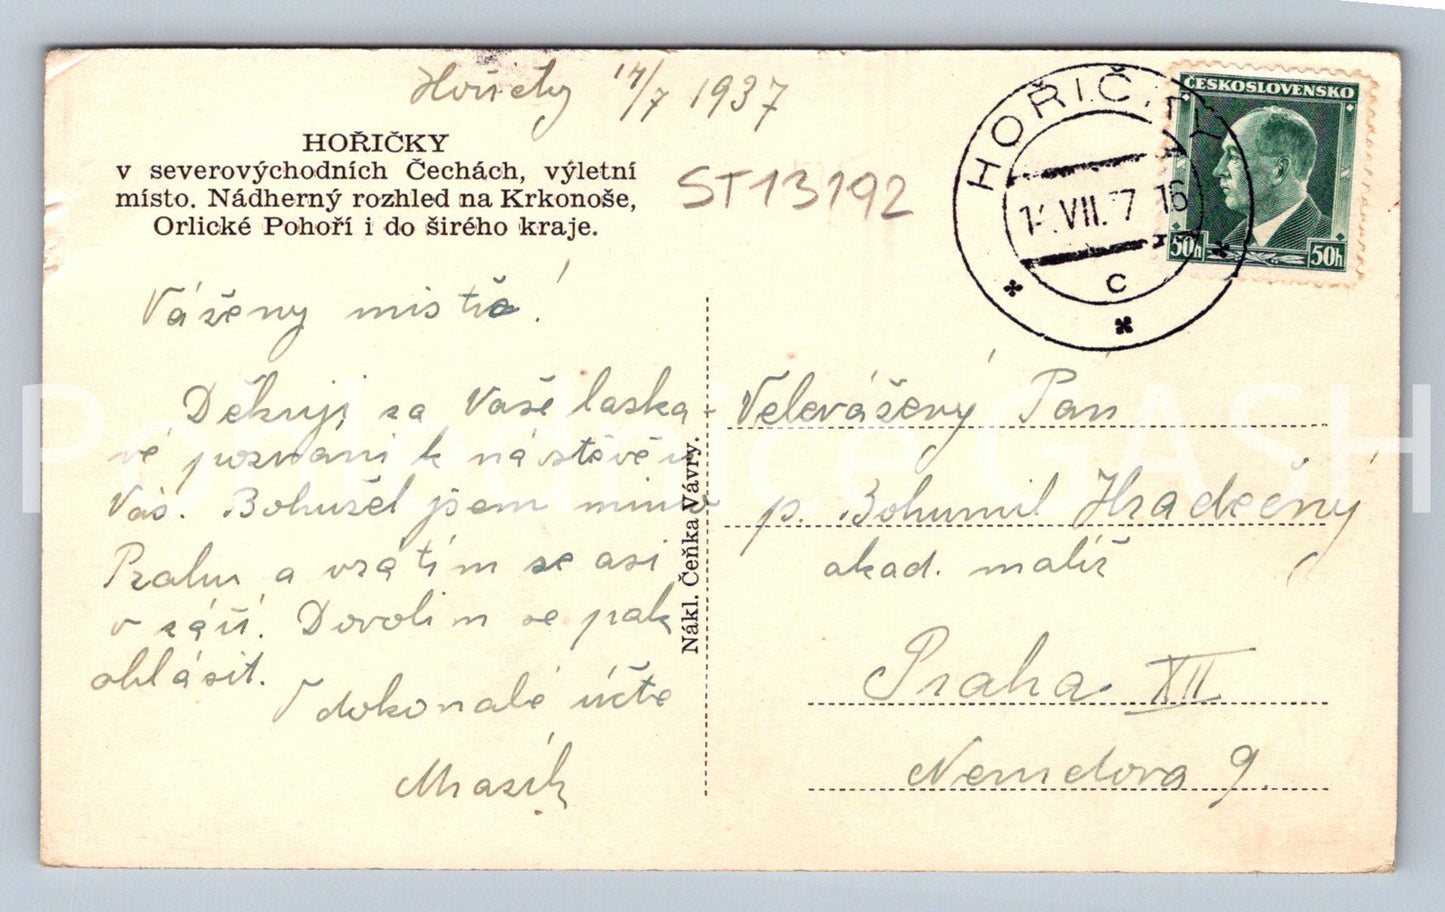 Hořičky 14/7 1937
HOŘIČKY
v severovýchodních Čechách, výletní
místo. Nádherný rozhled na Krkonoše,
Orlické Pohoří i do širého kraje.
ST13192
HOŘIČKY
VII. 7 16
C
ČESKOSLOVENSKO
50h 50h
Vážený mistře!
Děkuji za Vaše laska-
vé pozvání k návštěvě u
Vás. Bohužel jsem mimo
Prahu a vrátím se asi
v září. Dovolím se pak
ohlásit.
V dokonalé úctě
Nákl. Čeňka Vávry.
Velevážený Pán
p. Bohumil Hradečný
akad. malíř
Praha XII
9.
Pohlednice GASH